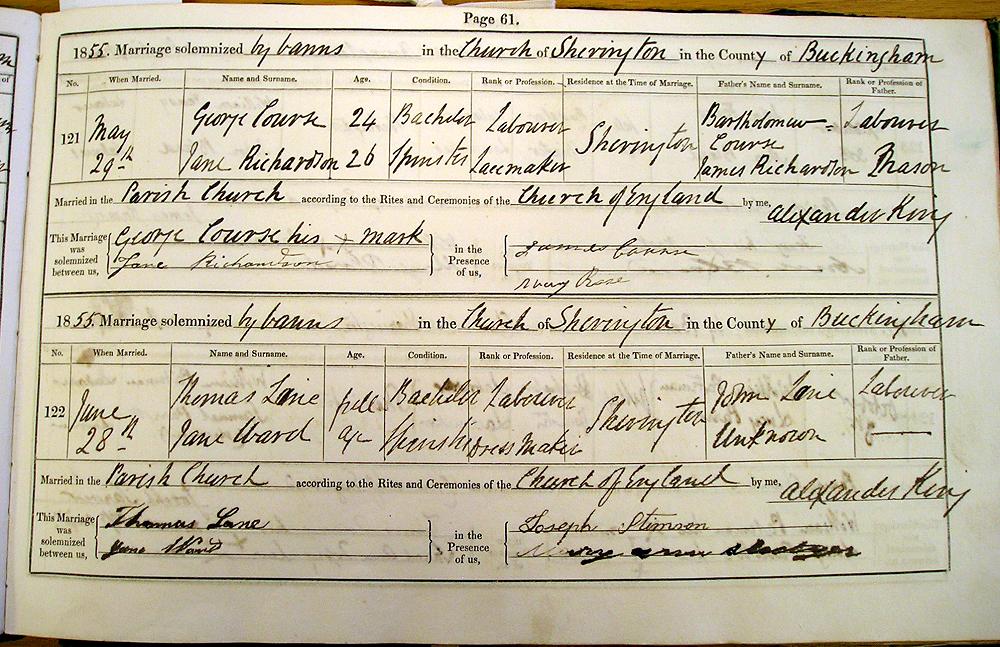 Page 61.
1855. Marriage solemnized by banns in the Church of Sherington in the County of Buckingham
No. When Married. Name and Surname. Age. Condition. Rank or Profession. Residence at the Time of Marriage. Father's Name and Surname. Rank or Profession of Father.
121 May 29th George Course 24 Bachelor Labourer Sherington Bartholomew Course Labourer
Jane Richardson 26 Spinster Lacemaker James Richardson Mason
Married in the Parish Church according to the Rites and Ceremonies of the Church of England by me, Alexander King
This Marriage was solemnized between us, George Course his x mark in the Presence of us, James Course
Jane Richardson Mary Rose
1855. Marriage solemnized by banns in the Church of Sherington in the County of Buckingham
No. When Married. Name and Surname. Age. Condition. Rank or Profession. Residence at the Time of Marriage. Father's Name and Surname. Rank or Profession of Father.
122 June 28th Thomas Lane full age Bachelor Labourer Sherington John Lane Labourer
Jane Ward Spinster Dress Maker Unknown
Married in the Parish Church according to the Rites and Ceremonies of the Church of England by me, Alexander King
This Marriage was solemnized between us, Thomas Lane in the Presence of us, Joseph Stimson
Jane Ward Ann